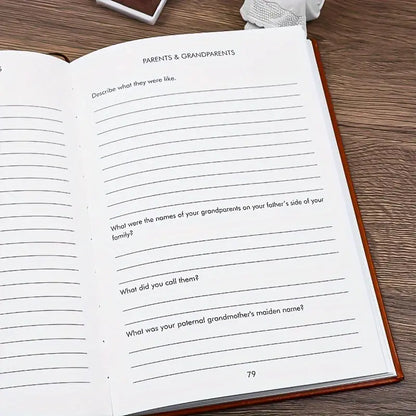 S
PARENTS & GRANDPARENTS
Describe what they were like.
What were the names of your grandparents on your father's side of your
family?
What did you call them?
What was your paternal grandmother's maiden name?
79